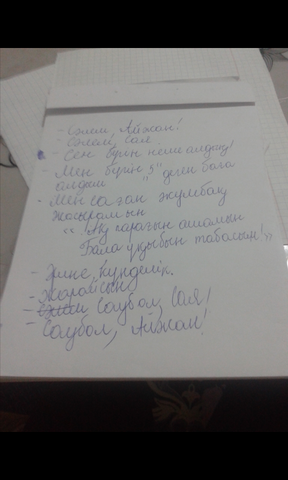 - Сәлем, Айжан!
- Сәлем, Сая.
- Сен бүгін неше алдың?
- Мен бүгін "5" деген баға
алдым
- Мен саған жұмбақ
жасырамын
« Ақ парағын ашамын
Бала
табасың!»
- Әрине, күнделік.
- Жарайсың!
- Саубол, Сая!
- Саубол, Айжан!